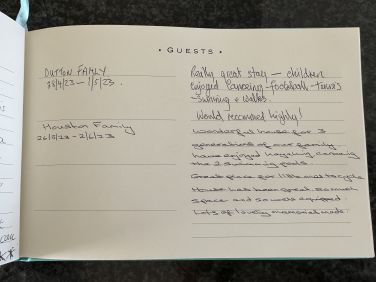 • GUESTS •
DUTTON FAMILY
28/4/23 – 1/5/23.
Really great stay – children
enjoyed canoeing - football - tennis
- swimming + walks.
Would recommend highly!
Houston Family
26/5/23 - 2/6/23
Wonderful house for 3
generations of our family.
have enjoyed kayaking canoeing
the 2 swimming pools.
Great place for little ones to cycle
House has been great so much
space and so well equipped.
Lots of lovely memories made.